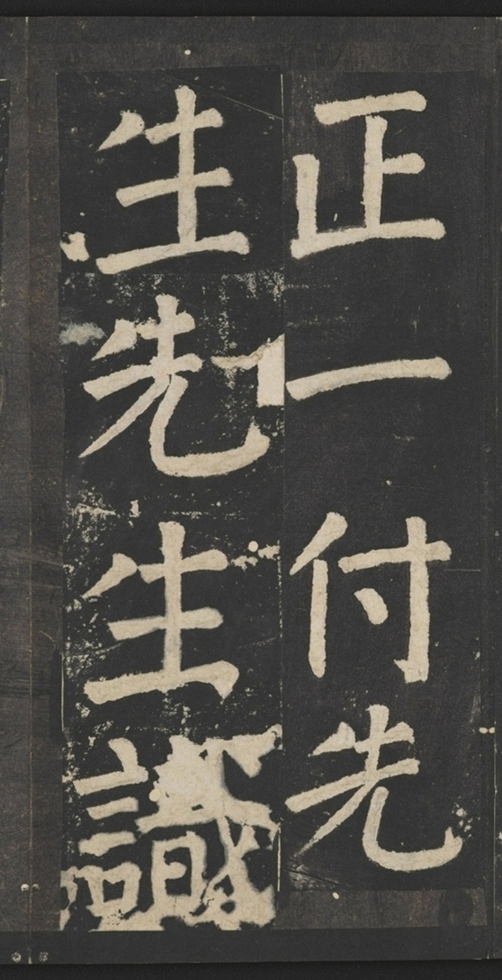 正一付先
生先生識